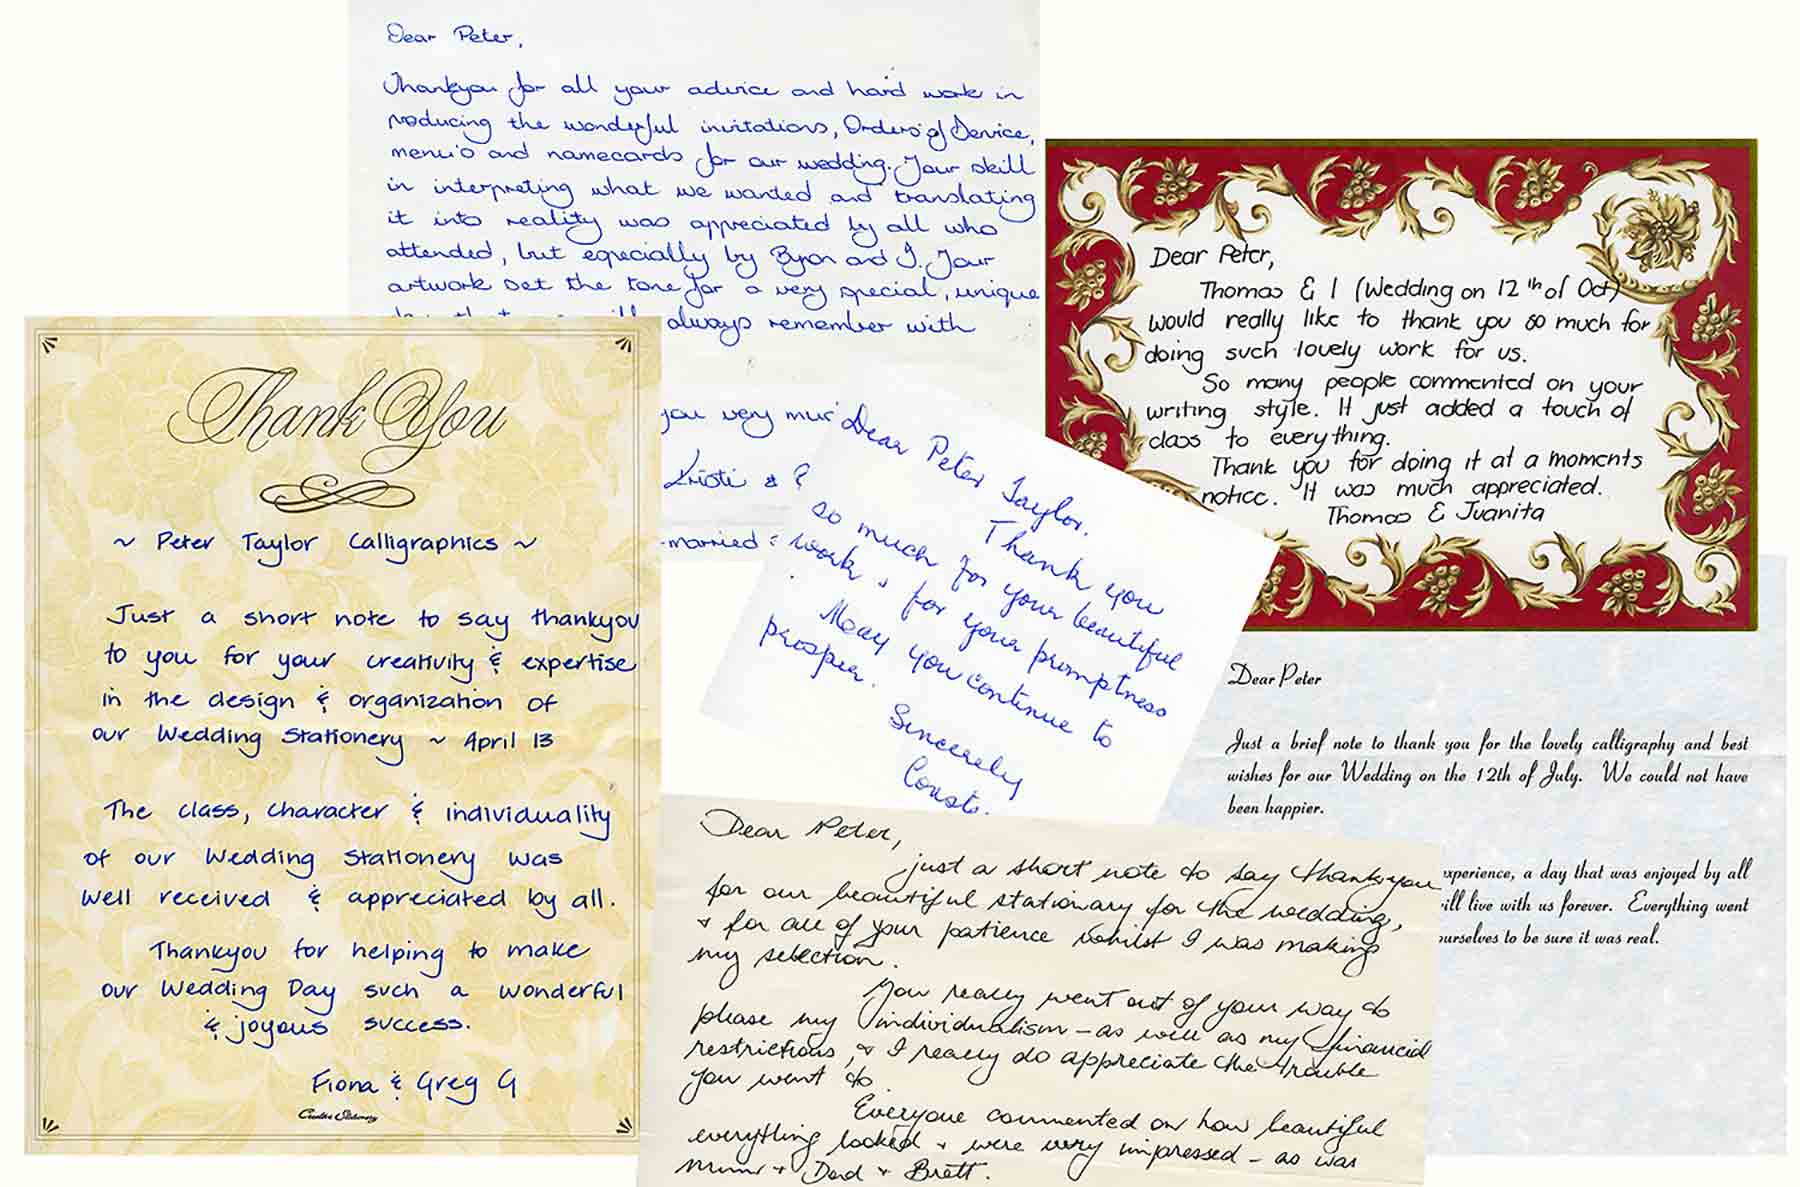 Dear Peter,
Thankyou for all your advice and hard work in
producing the wonderful invitations, Orders of Service,
menu's and namecards for our wedding. Your skill
in interpreting what we wanted and translating
it into reality was appreciated by all who
attended, but especially by Byron and I. Your
artwork set the tone for a very special, unique
always remember with
you very
Kristi &
married
Dear Peter,
Thomas & I (Wedding on 12th of Oct)
would really like to thank you so much for
doing such lovely work for us.
So many people commented on your
writing style. It just added a touch of
class to everything.
Thank you for doing it at a moments
notice. It was much appreciated.
Thomas & Juanita
Thank You
~ Peter Taylor Calligraphics ~
Just a short note to say thankyou
to you for your creativity & expertise
in the design & organization of
our Wedding Stationery ~ April 13
The class, character & individuality
of our Wedding Stationery was
well received & appreciated by all.
Thankyou for helping to make
our Wedding Day such a wonderful
& joyous success.
Fiona & Greg G
Creative Stationery
Dear Peter Taylor.
Thank you
so much for your beautiful
work & for your promptness
May you continue to
prosper.
Sincerely
Dear Peter
Just a brief note to thank you for the lovely calligraphy and best
wishes for our Wedding on the 12th of July. We could not have
been happier.
experience, a day that was enjoyed by all
will live with us forever. Everything went
ourselves to be sure it was real.
Dear Peter,
just a short note to say thankyou
for our beautiful stationary for the wedding,
& for all of your patience whilst I was making
my selection.
You really went out of your way to
please my individualism - as well as my financial
restrictions, & I really do appreciate the trouble
you went to.
Everyone commented on how beautiful
everything looked & were very impressed - as was
Mum & Dad & Brett.